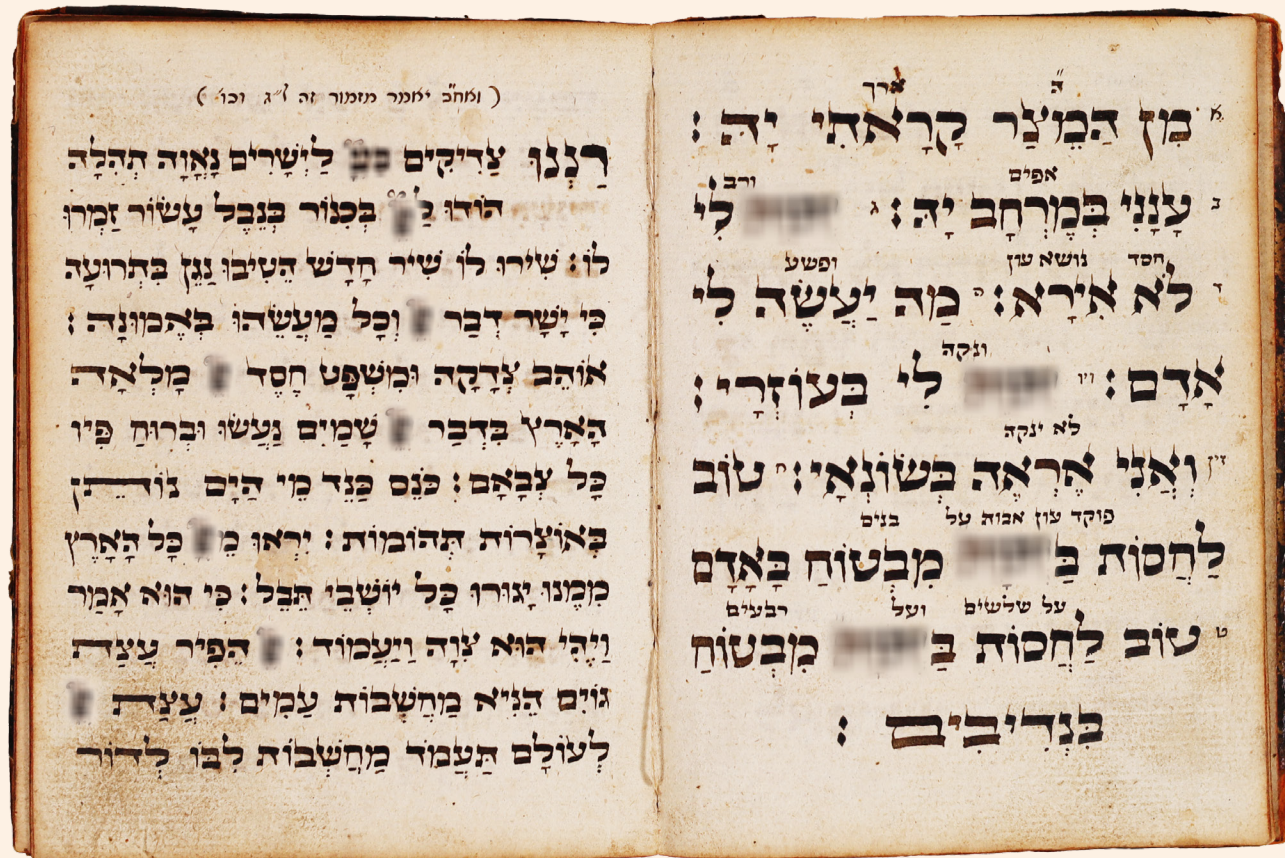 ה" ארך
א מִן הַמֵּצַר קָרָאתִי יָהּ :
אפים ורב
ב עָנָנִי בַּמֶּרְחָב יָהּ : ג לִי
חסד נושא עון ופשע
ד לֹא אִירָא : ה מַה יַּעֲשֶׂה לִי
ונקה
אָדָם : ויו לִי בְּעוֹזְרָי :
לא ינקה
זין וַאֲנִי אֶרְאֶה בְשׂוֹנְאָי : ח טוֹב
פוקד עון אבות על בנים
לַחֲסוֹת בַּ מִבְטוֹחַ בָּאָדָם
על שלשים ועל רבעים
ט טוֹב לַחֲסוֹת בַּ מִבְטוֹחַ
בִּנְדִיבִים :
( ואח"כ יאמר מזמור זה ל"ג וכו' )
רַנְּנוּ צַדִּיקִים לַיְשָׁרִים נָאֲוָה תְהִלָּה
הוֹדוּ לַ בְּכִנּוֹר בְּנֵבֶל עָשׂוֹר זַמְּרוּ
לוֹ : שִׁירוּ לוֹ שִׁיר חָדָשׁ הֵטִיבוּ נַגֵּן בִּתְרוּעָה
כִּי יָשָׁר דְּבַר וְכָל מַעֲשֵׂהוּ בֶּאֱמוּנָה :
אוֹהֵב צְדָקָה וּמִשְׁפָּט חֶסֶד מָלְאָה
הָאָרֶץ בִּדְבַר שָׁמַיִם נַעֲשׂוּ וּבְרוּחַ פִּיו
כָּל צְבָאָם : כֹּנֵס כַּנֵּד מֵי הַיָּם נוֹתֵן
בְּאוֹצָרוֹת תְּהוֹמוֹת : יִרְאוּ מֵ כָּל הָאָרֶץ
מִמֶּנּוּ יָגוּרוּ כָּל יוֹשְׁבֵי תֵבֵל : כִּי הוּא אָמַר
וַיֶּהִי הוּא צִוָּה וַיַּעֲמוֹד : הֵפִיר עֲצַת
גּוֹיִם הֵנִיא מַחְשְׁבוֹת עַמִּים : עֲצַת
לְעוֹלָם תַּעֲמֹד מַחְשְׁבוֹת לִבּוֹ לְדוֹר